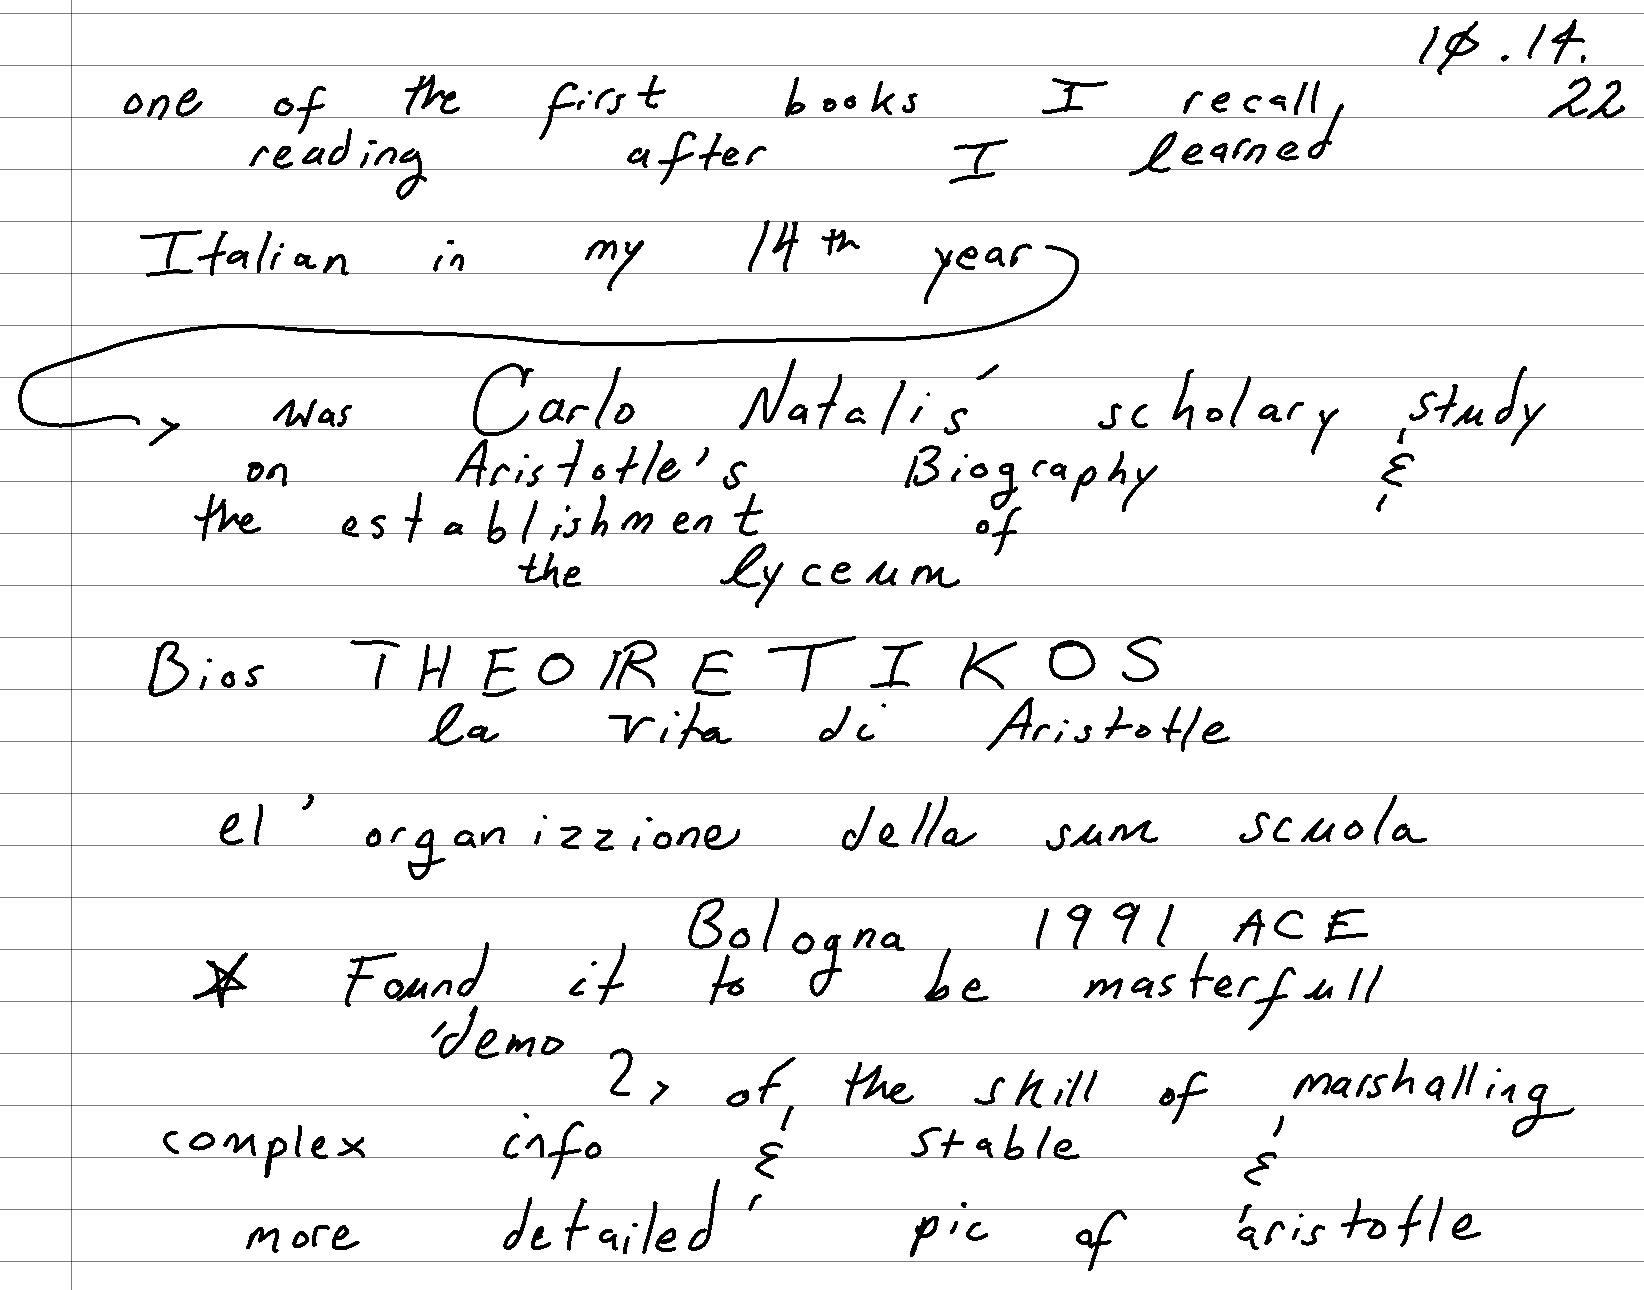 10.14.
one of the first books I recall, 22
reading after I learned
Italian in my 14th year
was Carlo Natali's scholary study
on Aristotle's Biography &
the establishment of
the lyceum
Bios THEORETIKOS
la vita di Aristotle
el' organizzione della sum scuola
Bologna 1991 ACE
Found it to be masterfull
'demo
2, of the skill of marshalling
complex info & stable &
more detailed pic of aristotle